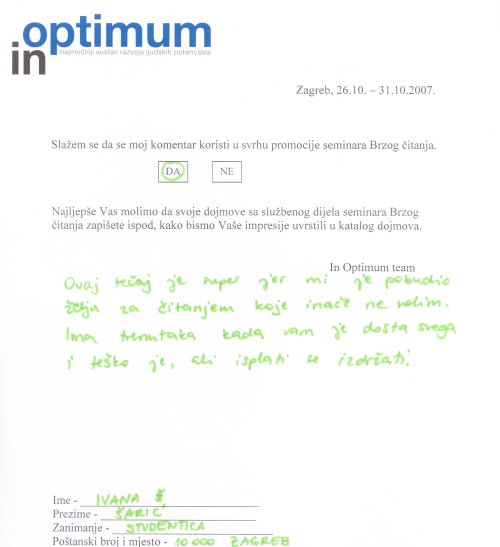 in optimum
najmoćniji sustav razvoja ljudskih potencijala
Zagreb, 26.10. – 31.10.2007.
Slažem se da se moj komentar koristi u svrhu promocije seminara Brzog čitanja.
DA NE
Najljepše Vas molimo da svoje dojmove sa službenog dijela seminara Brzog
čitanja zapišete ispod, kako bismo Vaše impresije uvrstili u katalog dojmova.
In Optimum team
Ovaj tečaj je super jer mi je pobudio
želju za čitanjem koje inače ne volim.
Ima trenutaka kada vam je dosta svega
i teško je, ali isplati se izdržati.
Ime - IVANA Š
Prezime - ŠARIĆ
Zanimanje - STUDENTICA
Poštanski broj i mjesto - 10 000 ZAGREB